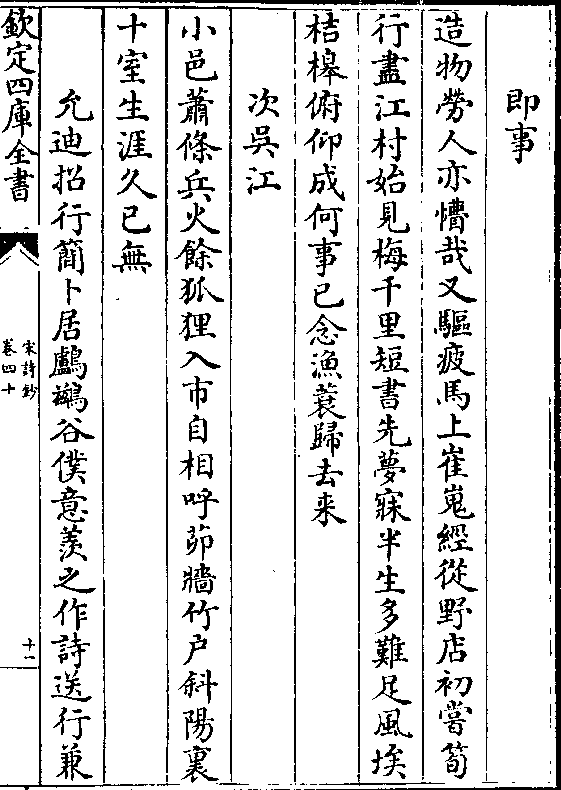 即事
造物勞人亦懵哉又驅疲馬上崔嵬經從野店初嘗筍
行盡江村始見梅千里短書先夢寐半生多難足風埃
桔槔俯仰成何事已念漁蓑歸去来
次吳江
小邑蕭條兵火餘狐狸入市自相呼茆牆竹户斜陽裏
十室生涯久已無
允迪招行簡卜居鸕鷀谷僕意羨之作詩送行兼
欽定四庫全書
宋詩鈔
卷四十
十一